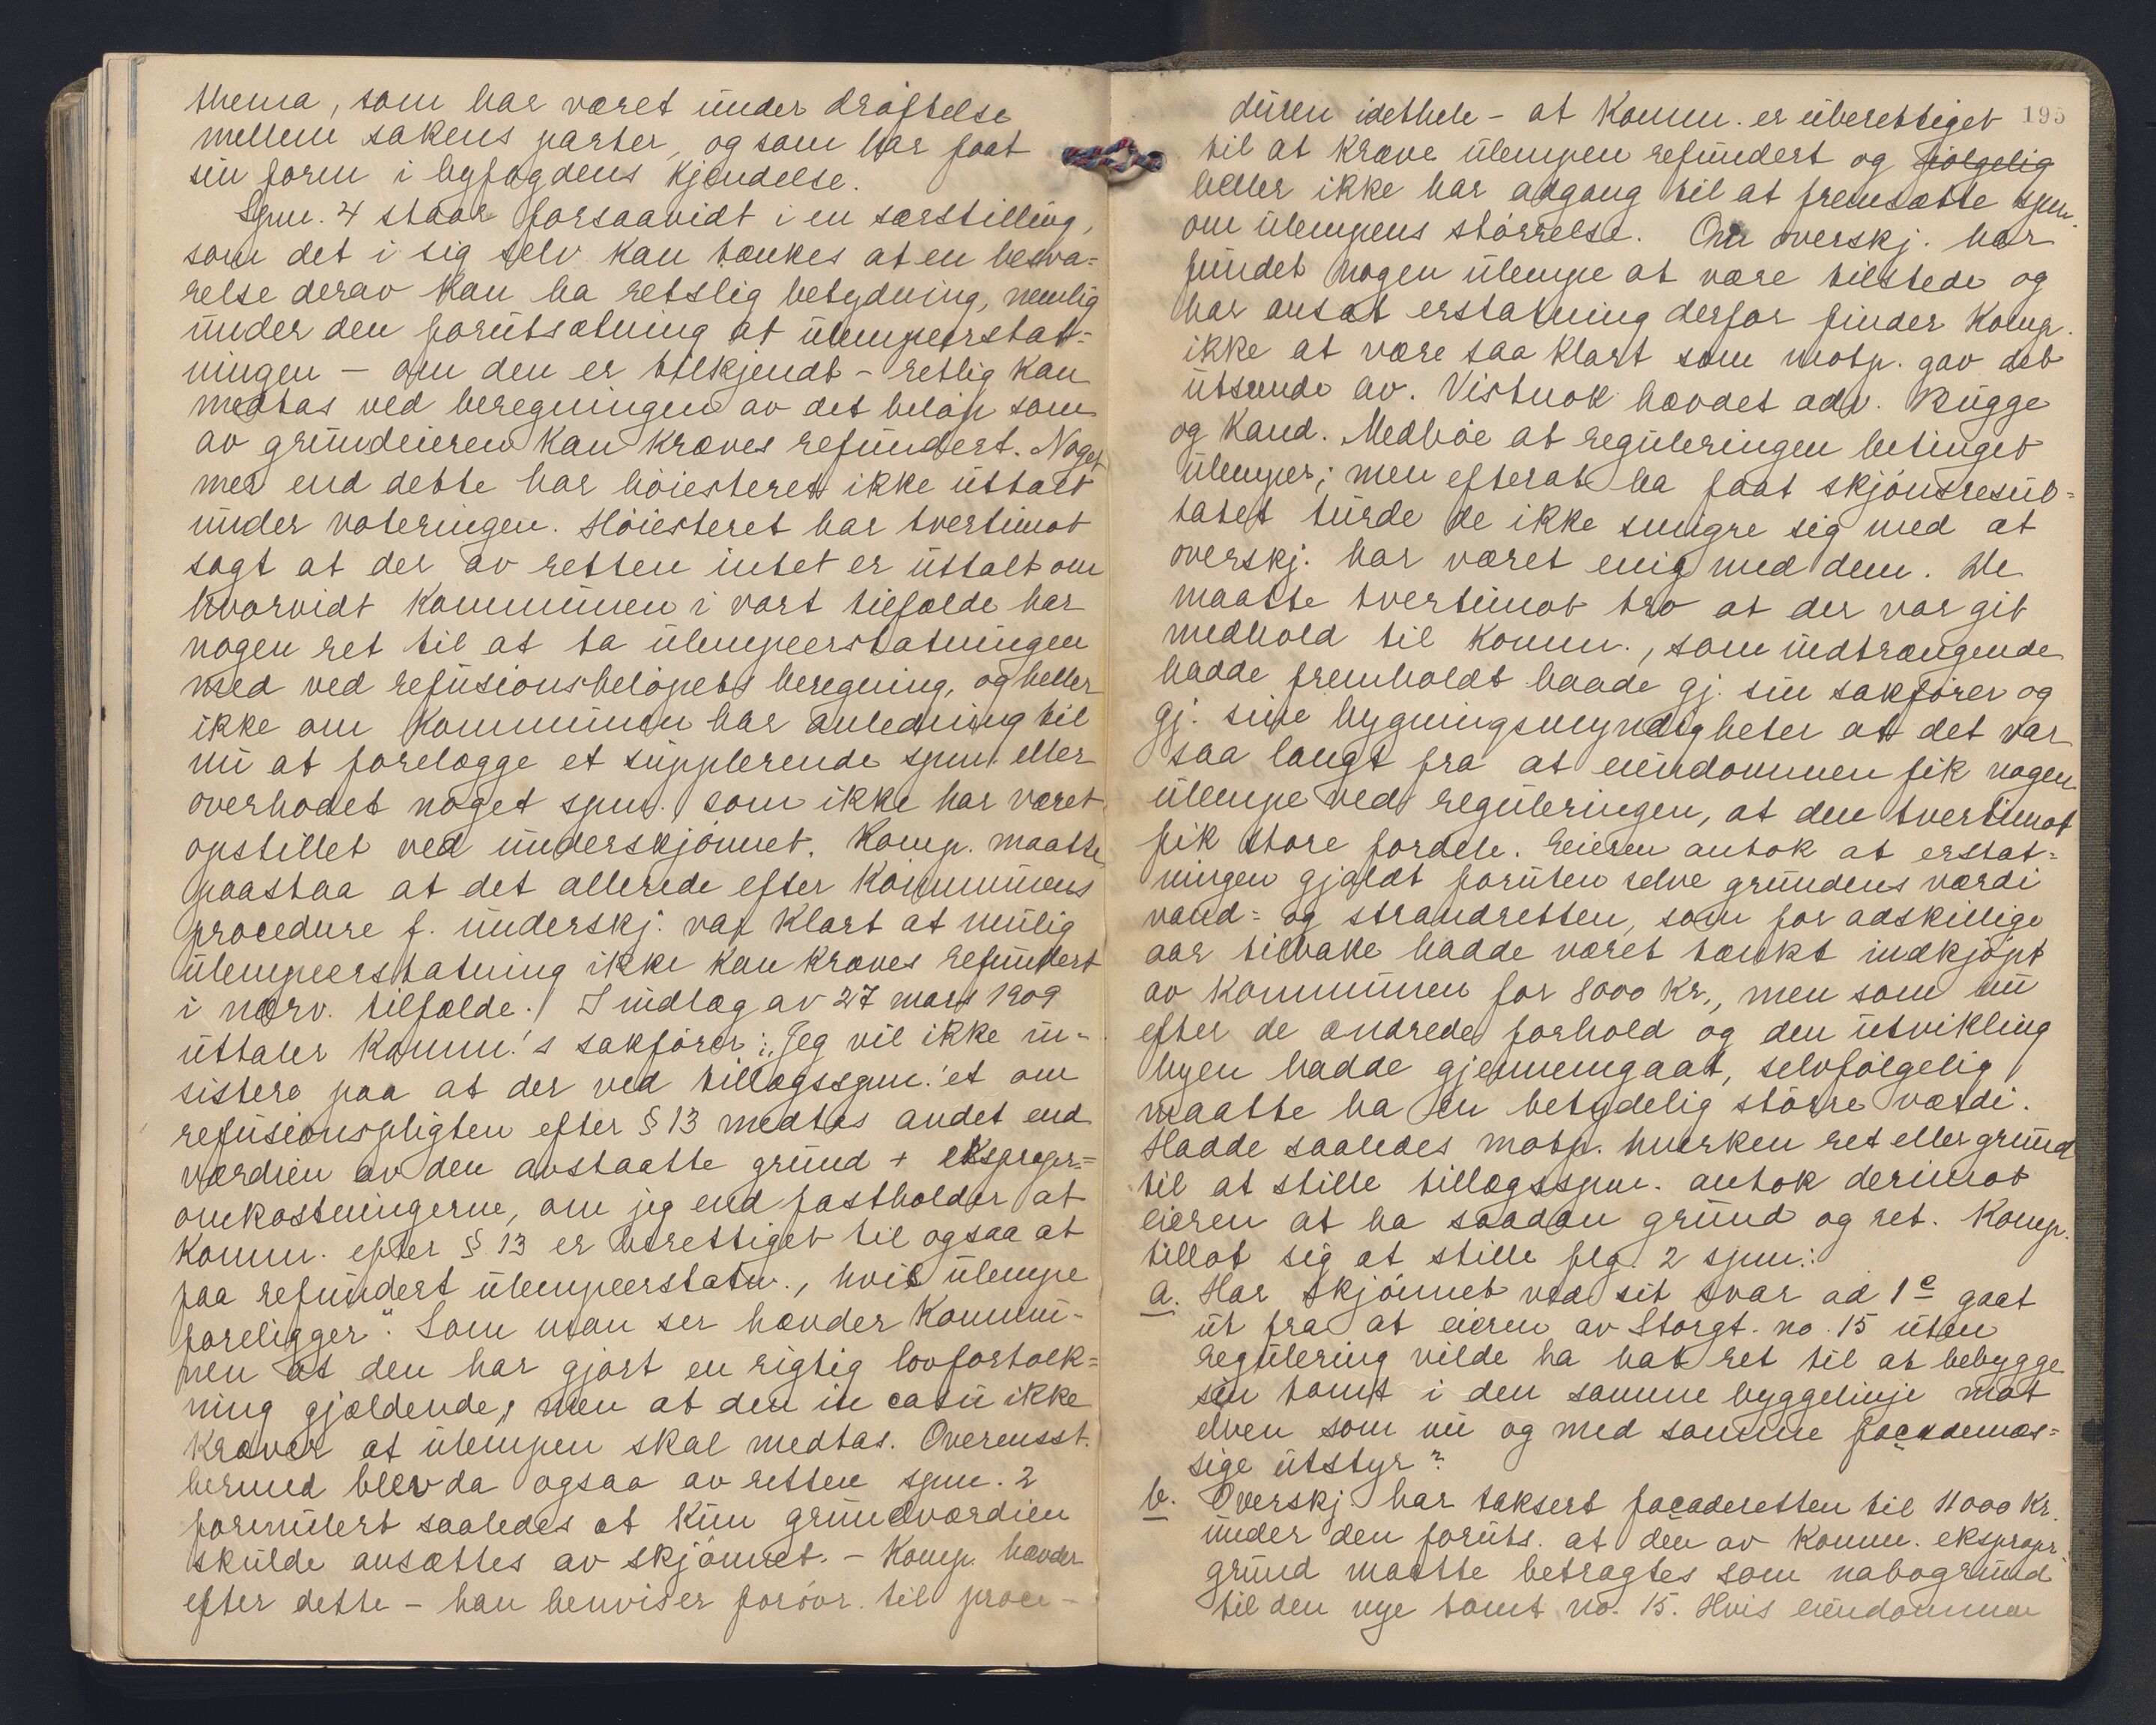 thema, som har været under drøftelse
mellem sakens parter, og som har faat
sin form i byfogdens kjendelse.
Spm. 4 staar forsaavidt i en særstilling,
som det i sig selv kan tænkes at en besva-
relse derav kan ha retslig betydning, nemlig
under den forutsætning at ulempeerstat-
ningen – om den er tilkjendt – retlig kan
medtas ved beregningen av det beløp som
av grundeieren kan kræves refundert. Noget
mer end dette har høiesteret ikke uttalt
under voteringen. Høiesteret har tvertimot
sagt at der av retten intet er uttalt om
hvorvidt kommunen i vort tilfælde har
nogen ret til at ta ulempeerstatningen
med ved refusionsbeløpets beregning, og heller
ikke om kommunen har anledning til
nu at forelægge et supplerende spm. eller
overhodet noget spm. som ikke har været
opstillet ved underskjønnet. Komp. maatte
paastaa at det allerede efter kommunens
procedure f. underskj. var klart at mulig
ulempeerstatning ikke kan kræves refundert
i nærv. tilfælde. I indlæg av 27 mars 1909
uttaler komm.'s sakfører: "Jeg vil ikke in-
sistere paa at der ved tillægsspm.'et om
refusionspligten efter § 13 medtas andet end
værdien av den avstaatte grund + ekspropr.-
omkostningerne, om jeg end fastholder at
komm. efter § 13 er berettiget til ogsaa at
faa refundert ulempeerstatn., hvis ulempe
foreligger". Som man ser hævder kommu-
nen at den har gjort en rigtig lovfortolk-
ning gjældende, men at den in casu ikke
kræver at ulempen skal medtas. Overensst.
hermed blev da ogsaa av retten spm. 2
formulert saaledes at kun grundværdien
skulde ansættes av skjønnet. – Komp. hævder
efter dette – han henviser forøvr. til proce-
195
duren idethele – at komm. er uberettiget
til at kræve ulempen refundert og følgelig
heller ikke har adgang til at fremsætte spm.
om ulempens størrelse. Om overskj. har
fundet nogen ulempe at være tilstede og
har ansat erstatning derfor finder komp.
ikke at være saa klart som motp. gav det
utseende av. Vistnok hævdet adv. Bugge
og kand. Medbøe at reguleringen betinget
ulemper; men efterat ha faat skjønsresul-
tatet turde de ikke smigre sig med at
overskj. har været enig med dem. De
maatte tvertimot tro at der var git
medhold til komm., som indtrængende
hadde fremholdt baade gj. sin sakfører og
gj. sine bygningsmyndigheter at det var
saa langt fra at eiendommen fik nogen
ulempe ved reguleringen, at den tvertimot
fik store fordele. Eieren antok at erstat-
ningen gjaldt foruten selve grundens værdi
vand- og strandretten, som for adskillige
aar tilbake hadde været tænkt indkjøpt
av kommunen for 8000 kr., men som nu
efter de ændrede forhold og den utvikling
byen hadde gjennemgaat, selvfølgelig
maatte ha en betydelig større værdi.
Hadde saaledes motp. hverken ret eller grund
til at stille tillægsspm. antok derimot
eieren at ha saadan grund og ret. Komp.
tillot sig at stille flg. 2 spm.:
a. Har skjønnet ved sit svar ad 1º gaat
ut fra at eieren av Storgt. no. 15 uten
regulering vilde ha hat ret til at bebygge
sin tomt i den samme byggelinje mot
elven som nu og med samme façademæs-
sige utstyr?
b. Overskj. har taksert façaderetten til 11000 kr.
under den foruts. at den av komm. ekspropr.
grund maatte betragtes som nabogrund
til den nye tomt no. 15. Hvis eiendommen